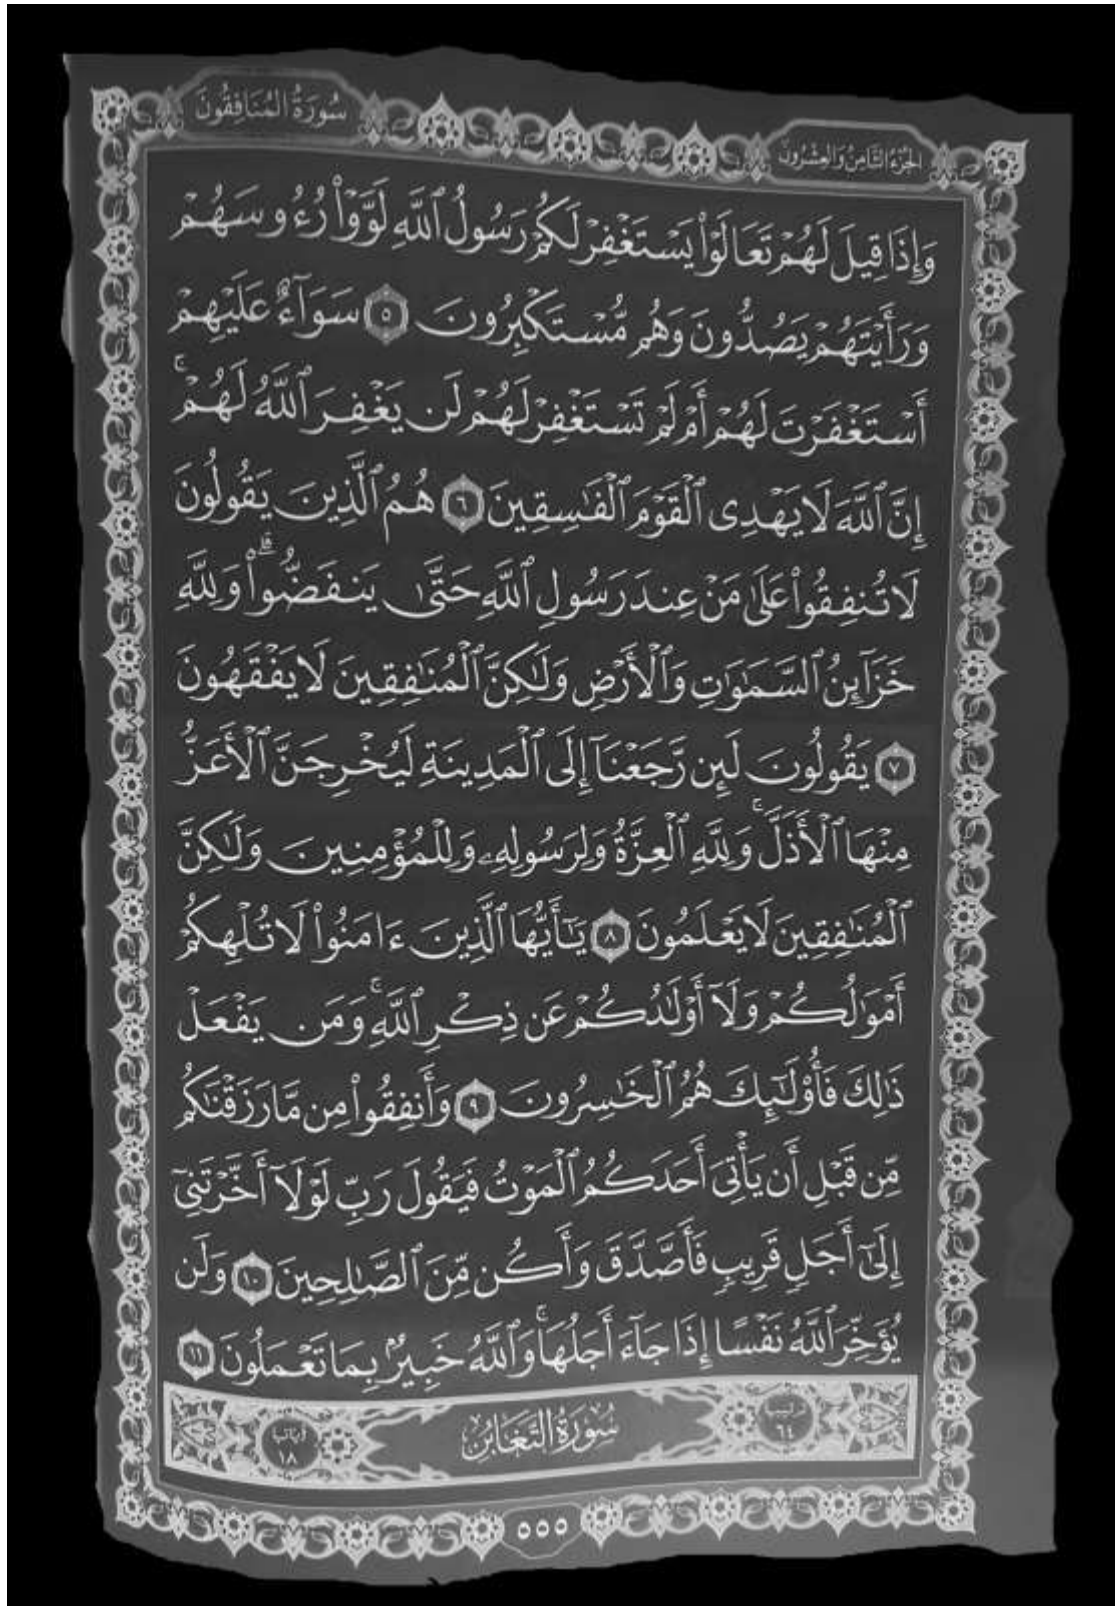 الجزء الثامن والعشرون
سورة المنافقون
وَإِذَا قِيلَ لَهُمْ تَعَالَوْا۟ يَسْتَغْفِرْ لَكُمْ رَسُولُ ٱللَّهِ لَوَّوْا۟ رُءُوسَهُمْ
وَرَأَيْتَهُمْ يَصُدُّونَ وَهُم مُّسْتَكْبِرُونَ ٥ سَوَآءٌ عَلَيْهِمْ
أَسْتَغْفَرْتَ لَهُمْ أَمْ لَمْ تَسْتَغْفِرْ لَهُمْ لَن يَغْفِرَ ٱللَّهُ لَهُمْ ۚ
إِنَّ ٱللَّهَ لَا يَهْدِى ٱلْقَوْمَ ٱلْفَٰسِقِينَ ٦ هُمُ ٱلَّذِينَ يَقُولُونَ
لَا تُنفِقُوا۟ عَلَىٰ مَنْ عِندَ رَسُولِ ٱللَّهِ حَتَّىٰ يَنفَضُّوا۟ ۗ وَلِلَّهِ
خَزَآئِنُ ٱلسَّمَٰوَٰتِ وَٱلْأَرْضِ وَلَٰكِنَّ ٱلْمُنَٰفِقِينَ لَا يَفْقَهُونَ
٧ يَقُولُونَ لَئِن رَّجَعْنَآ إِلَى ٱلْمَدِينَةِ لَيُخْرِجَنَّ ٱلْأَعَزُّ
مِنْهَا ٱلْأَذَلَّ ۚ وَلِلَّهِ ٱلْعِزَّةُ وَلِرَسُولِهِۦ وَلِلْمُؤْمِنِينَ وَلَٰكِنَّ
ٱلْمُنَٰفِقِينَ لَا يَعْلَمُونَ ٨ يَٰٓأَيُّهَا ٱلَّذِينَ ءَامَنُوا۟ لَا تُلْهِكُمْ
أَمْوَٰلُكُمْ وَلَآ أَوْلَٰدُكُمْ عَن ذِكْرِ ٱللَّهِ ۚ وَمَن يَفْعَلْ
ذَٰلِكَ فَأُو۟لَٰٓئِكَ هُمُ ٱلْخَٰسِرُونَ ٩ وَأَنفِقُوا۟ مِن مَّا رَزَقْنَٰكُم
مِّن قَبْلِ أَن يَأْتِىَ أَحَدَكُمُ ٱلْمَوْتُ فَيَقُولَ رَبِّ لَوْلَآ أَخَّرْتَنِىٓ
إِلَىٰٓ أَجَلٍ قَرِيبٍ فَأَصَّدَّقَ وَأَكُن مِّنَ ٱلصَّٰلِحِينَ ١٠ وَلَن
يُؤَخِّرَ ٱللَّهُ نَفْسًا إِذَا جَآءَ أَجَلُهَا ۚ وَٱللَّهُ خَبِيرٌۢ بِمَا تَعْمَلُونَ ١١
ترتيبها ٦٤
سورة التغابن
آياتها ١٨
٥٥٥